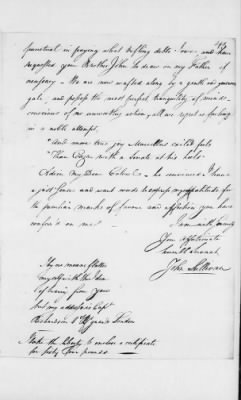 punctual in paying what trifling debts I owe - and have
requested your Brother John to draw on my Father if
necessary - We are now wafted along by a gentle and prosperous
gale, and possess the most perfect tranquility of mind -
conscious of no unworthy action, all we regret is failing
in a noble attempt.
"And more true joy Marcellus exiled feels
"Than Cæsar with a Senate at his heels"
Adieu My Dear Colonel - be convinced I have
a just sense and want words to express my gratitude for
the peculiar marks of favour and affection you have
confer'd on me -
I am with Sincerity
Your affectionate
humble Servant
John Sullivan
By no means flatter
myself with the Idea
of hearing from you
but my address is Capt
Richardson's
London
Make the liberty to enclose a certificate
for forty five pounds -